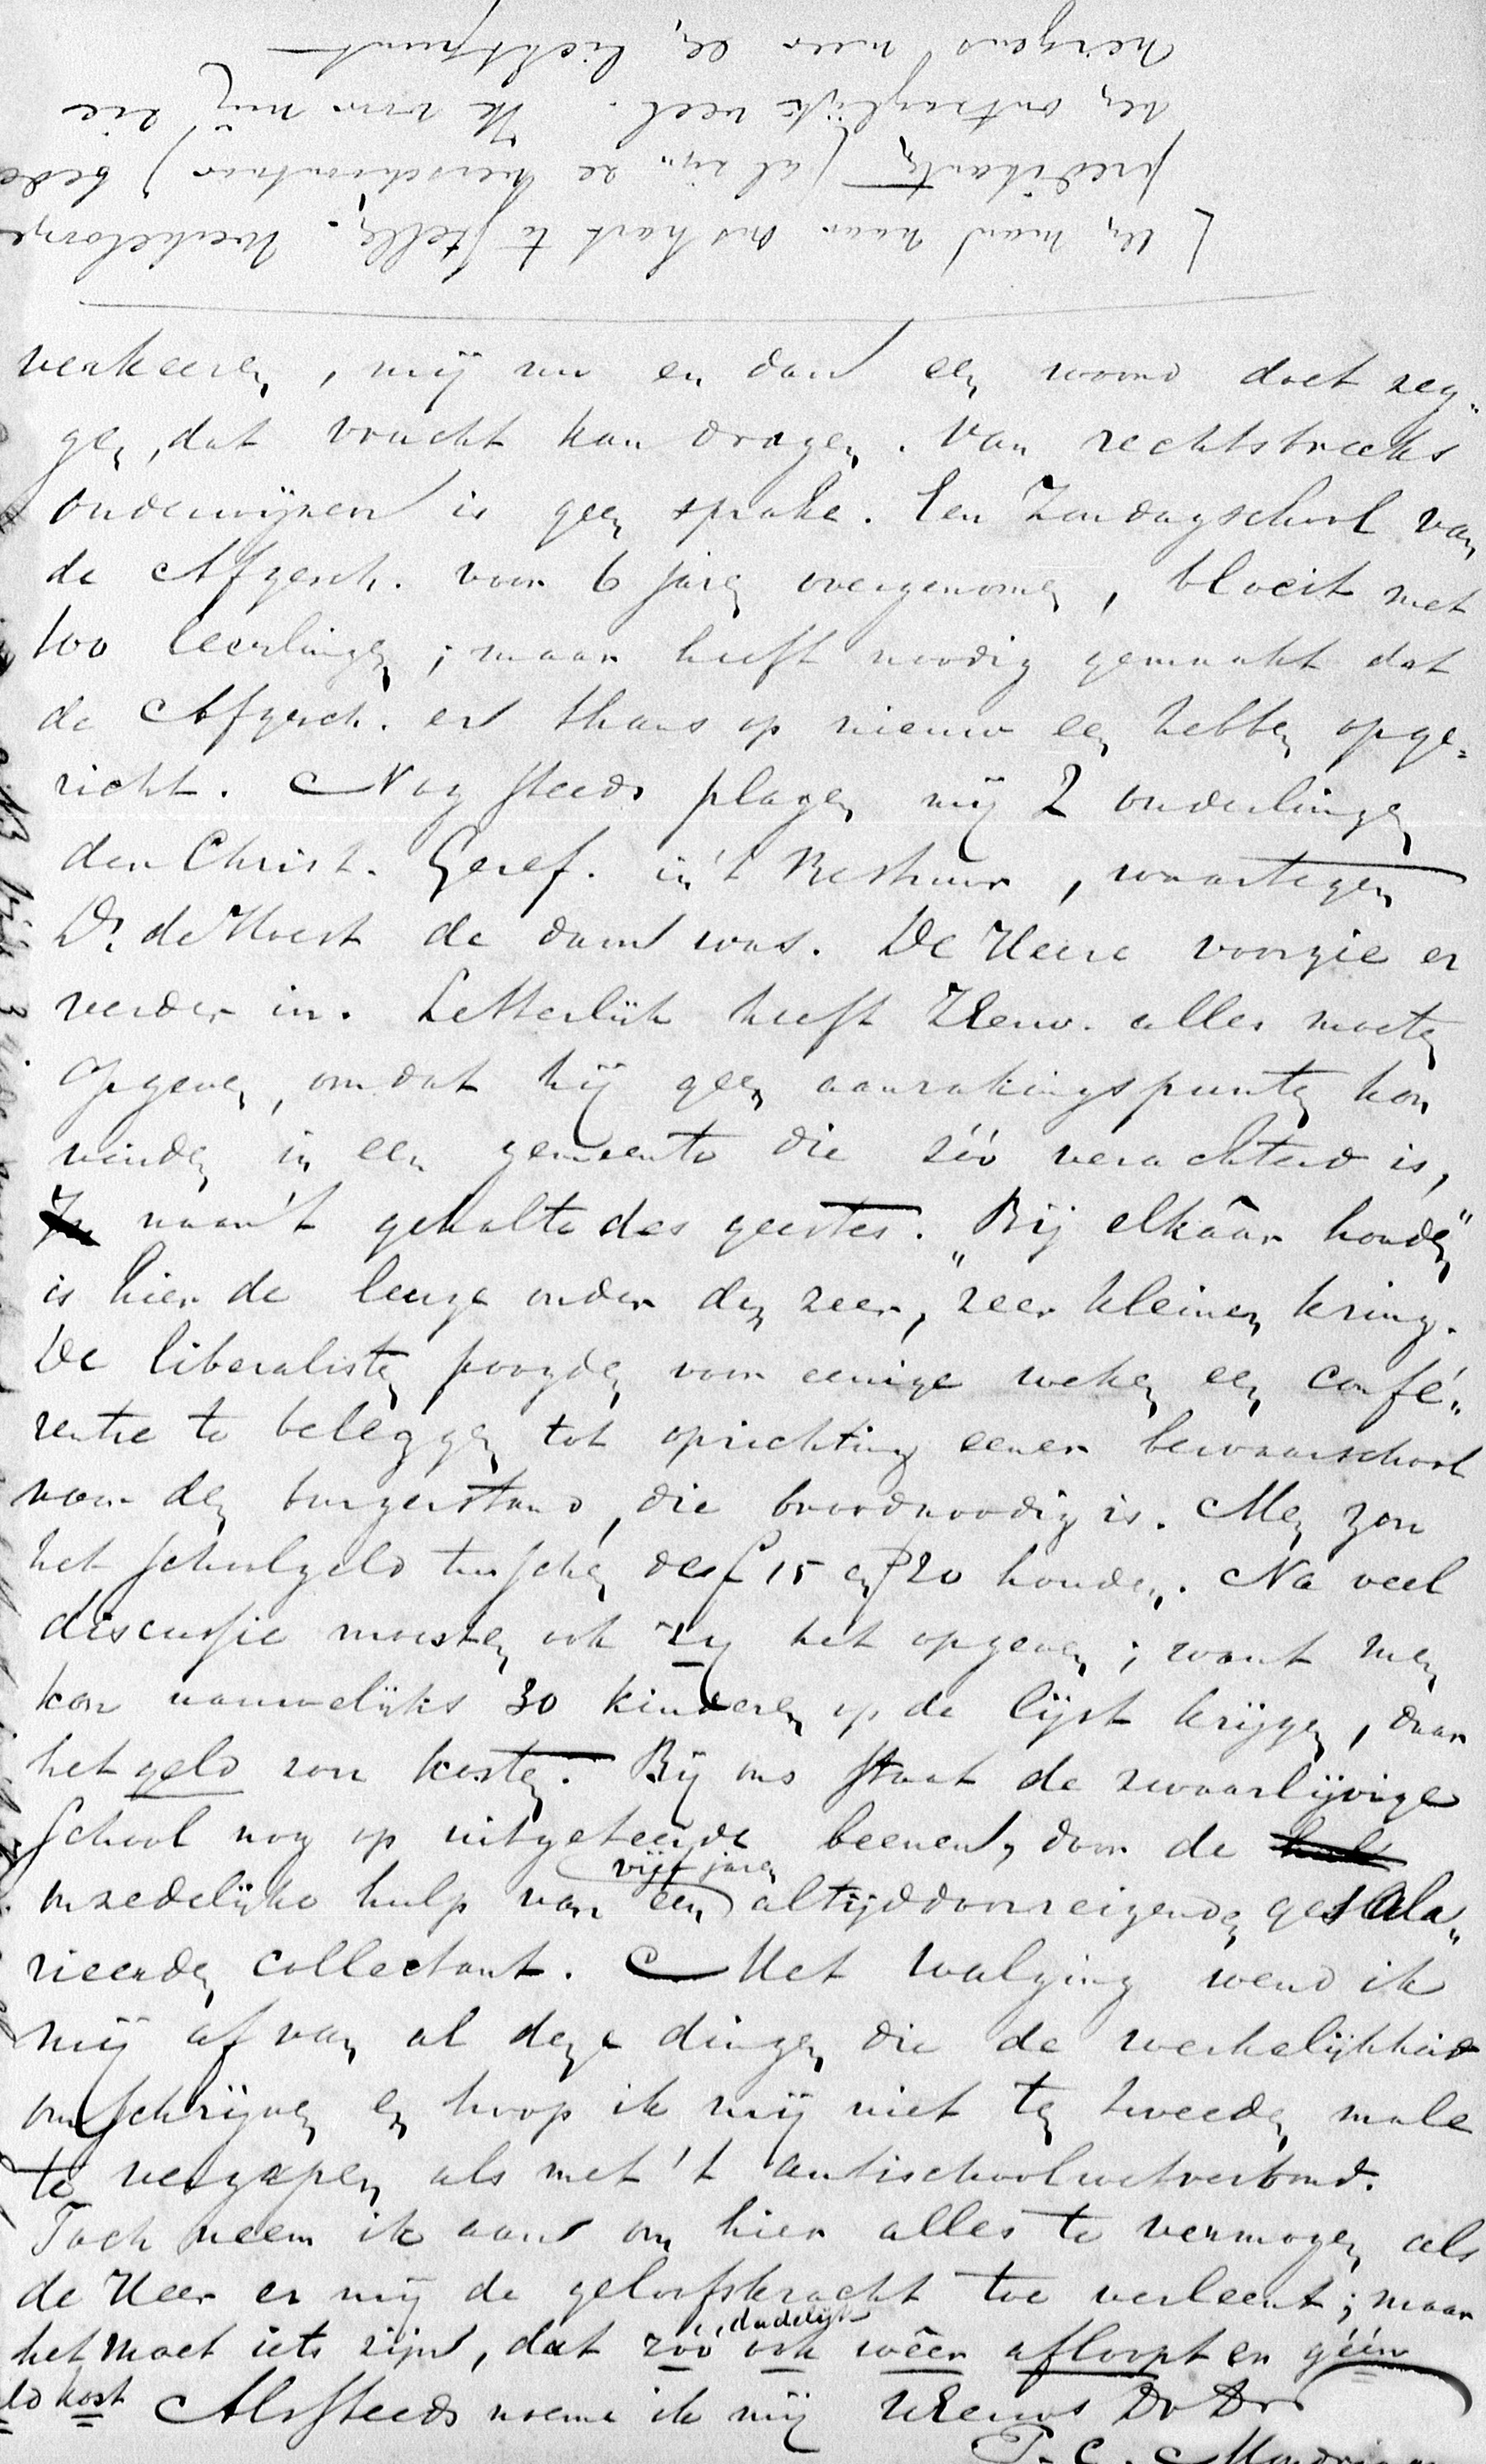 verkeeren, mij nu en dan een woord doet zeg„
gen, dat vrucht kan dragen. Van rechtstreeks
onderwijzen is geen sprake. Een Zondagschool van
de Afgesch. voor 6 jaren overgenomen, bloeit met
100 leerlingen; maar heeft noodig gemaakt dat
de Afgesch. er thans op nieuw een hebben opge=
richt. Nog steeds plagen mij 2 ouderlingen
der Christ. Geref. in 't Bestuur, waartegen
Ds. de Hoest de dam was. De Heere voorzie er
verder in. Letterlijk heeft ZEerw. alles moeten
opgeven, omdat hij geen aanrakingspunten kon
vinden in een gemeente die zóó verachterd is,
naar 't gehalte des geestes. „Bij elkâar houden"
is hier de leuze onder den zeer, zeer kleinen kring.
De liberalisten poogden voor eenige weken een confé„
rentie te beleggen tot oprichting eener bewaarschool
voor den burgerstand, die broodnoodig is. Men zou
het schoolgeld tusschen de f 15 en f 20 houden. Na veel
discussie moesten ook zij het opgeven; want men
kon nauwelijks 30 kinderen op de lijst krijgen, daar
het geld zou kosten. Bij ons staat de zwaarlijvige
School nog op uitgeteerde beenen, door de
onzedelijke hulp van een vijf jaren altijddoorreizenden gesala„
rieerden collectant. Met walging wend ik
mij af van al deze dingen die de werkelijkheid
omschrijven en hoop ik mij niet ten tweeden male
te vergapen als met 't antischoolwetverbond.
Toch neem ik aan om hier alles te vermogen als
de Heer er mij de geloofskracht toe verleent; maar
het moet iets zijn, dat zoo dadelijk ook wêer afloopt en géén
ld kost Als steeds noeme ik mij UEerws Dv Dr
P. C. Mondriaan
[een mand naar ons hart te stellen. Werkelooze
predikanten (al zijn ze herschenbaar) bede
len ontzaglijk veel. Ik voor mij zie
nergens meer een lichtpunt —